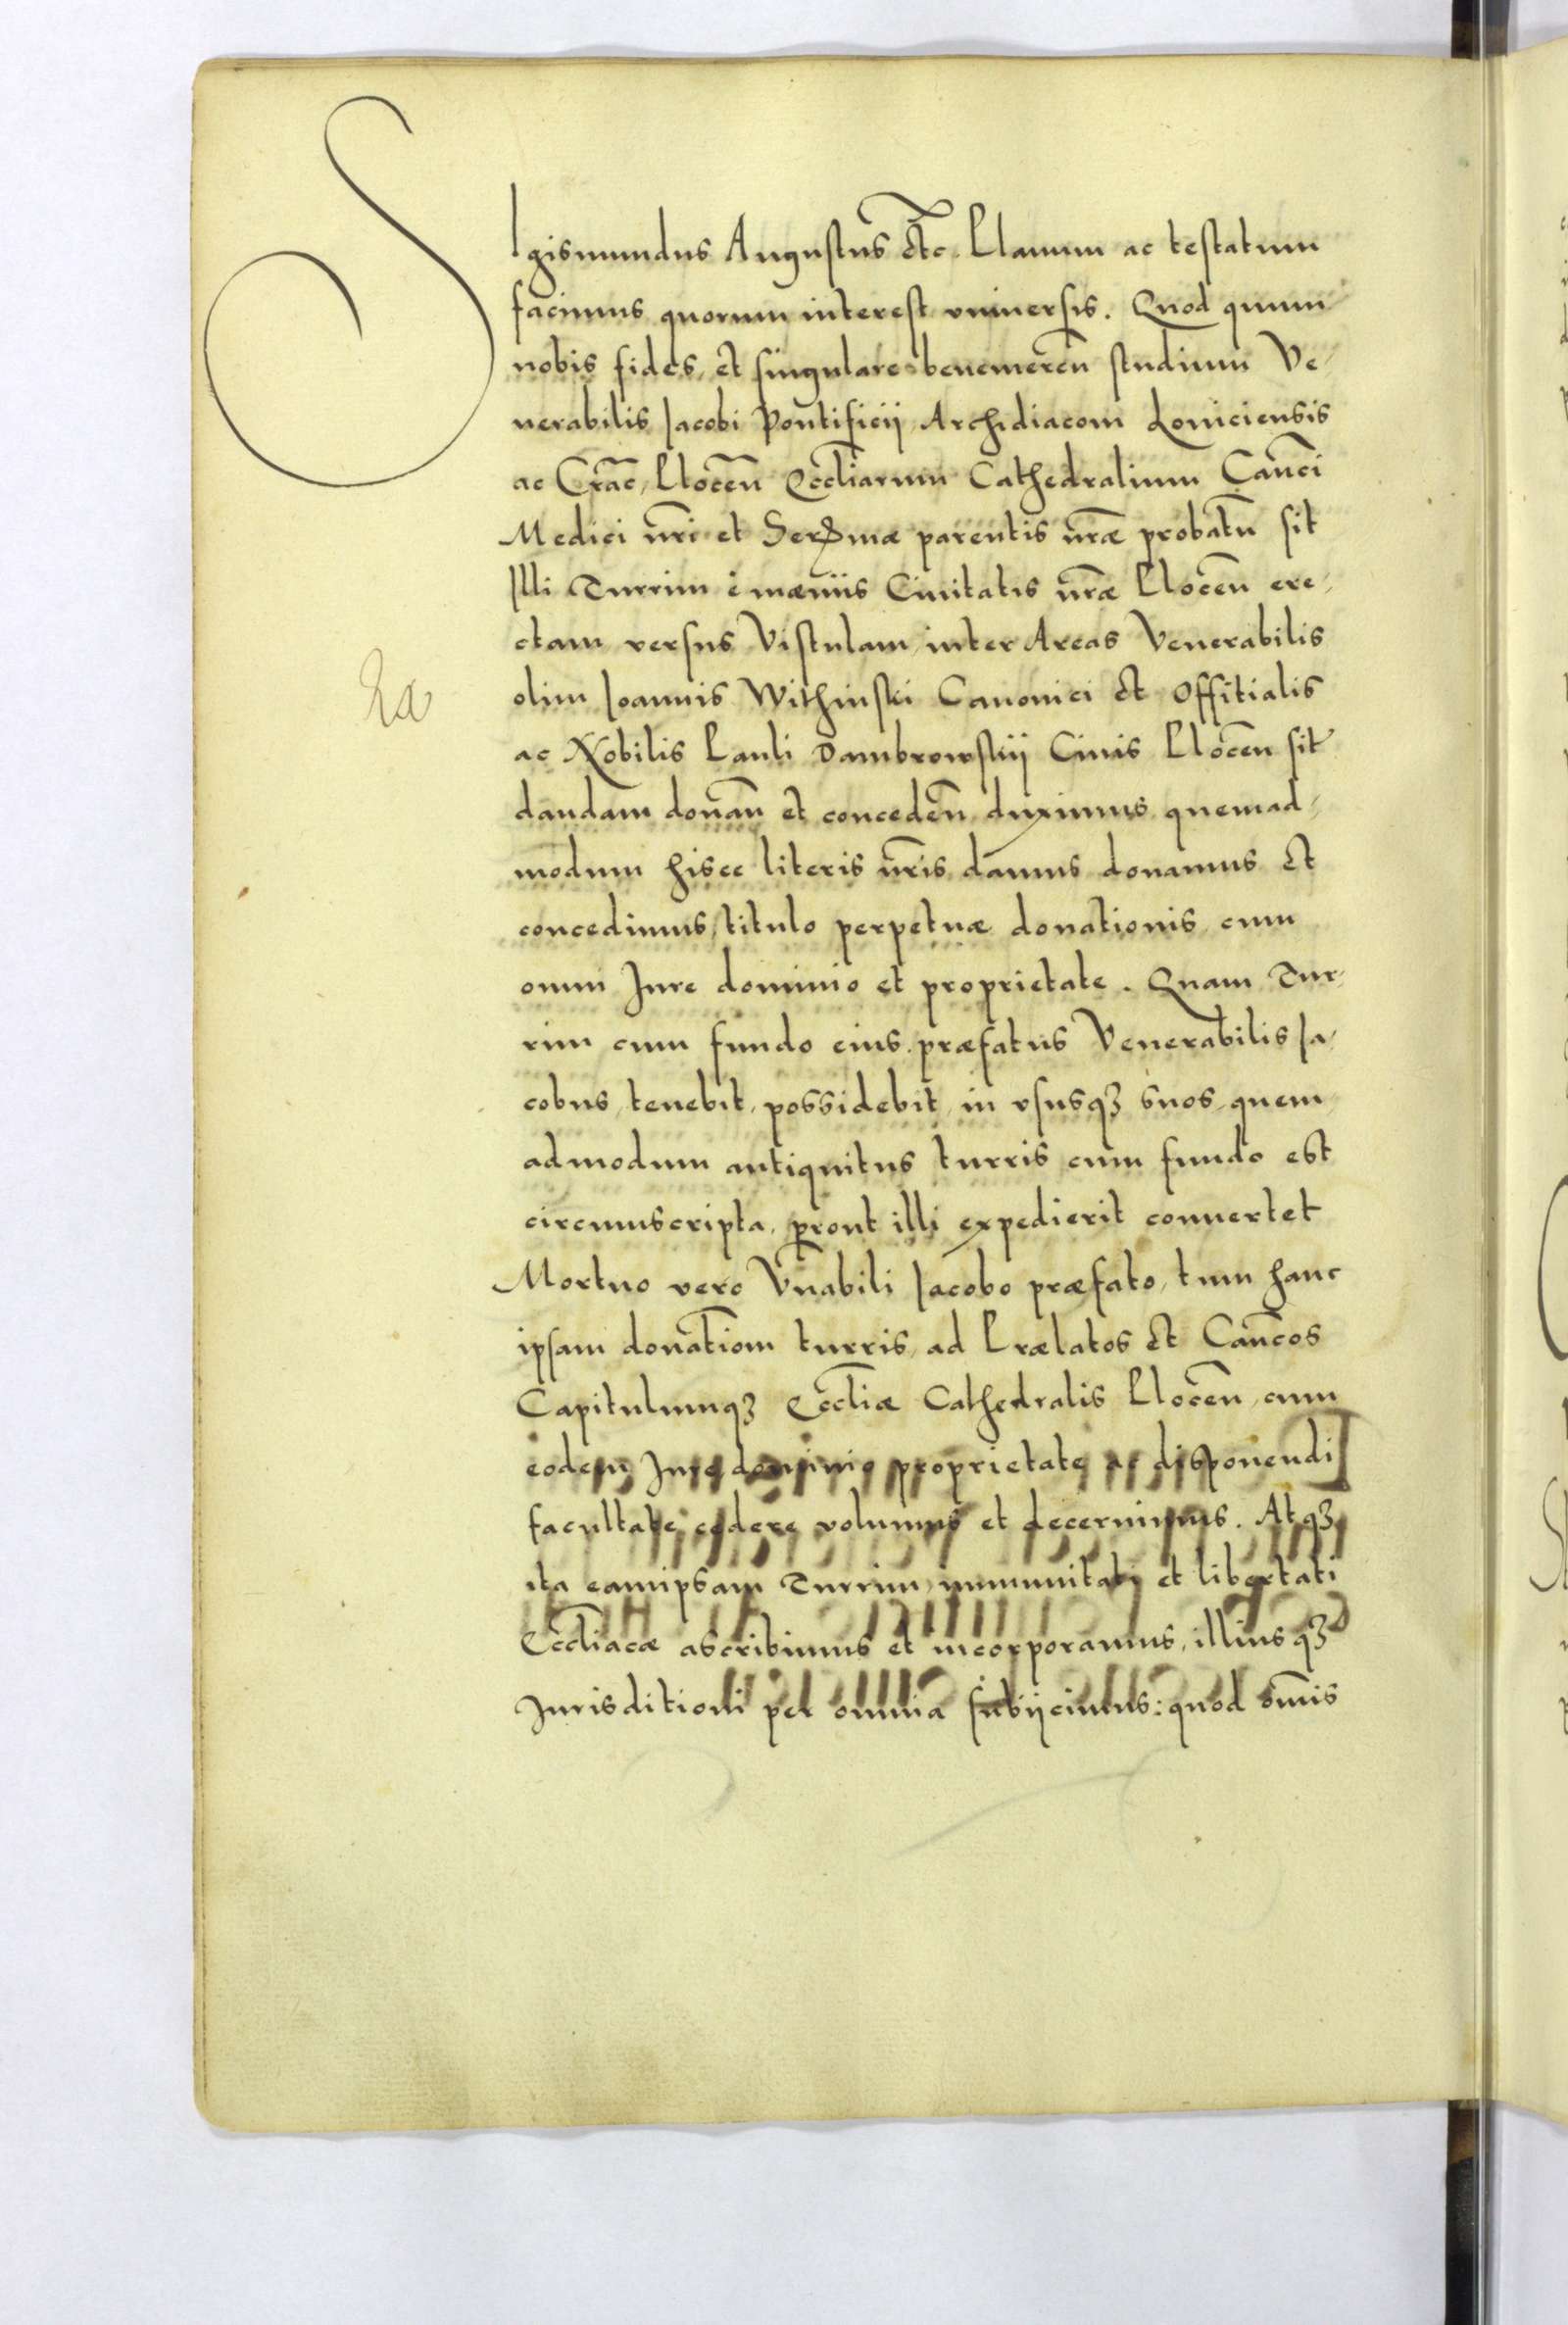 SIgismundus Augustus etc. Planum ac testatum
facimus quorum interest vniuersis. Quod quum
nobis fides, et singulare benemeren̄ studium Ve-
nerabilis Jacobi Pontificij Archidiaconi Louiciensis
ac Crac̄, Plocen̄ Eccl̄iarum Cathedralium Can̄ci
Medici nr̄i et Ser̄mæ parentis nr̄æ probatū sit
Illi Turrim ī mæniis Ciuitatis nr̄æ Plocen̄ ere-
ctam versus Vistulam inter Areas Venerabilis
olim Joannis Withinski Canonici et Offitialis
ac Nobilis Pauli Dambrowskij Ciuis Plocen̄ sit
Ra
dandam donan̄ et conceden̄ duximus quemad-
modum hisce literis nr̄is damus donamus et
concedimus, titulo perpetuæ donationis cum
omni Jure dominio et proprietate. Quam Tur-
rim cum fundo eius præfatus Venerabilis Ja-
cobus, tenebit, possidebit, in vsusqꝫ suos quem-
admodum antiquitus turris cum fundo est
circumscripta, prout illi expedierit conuertet
Mortuo vero Vn̄abili Jacobo præfato, tum hanc
ipsam donat̄iom turris, ad Prælatos et Can̄cos
Capitulumqꝫ Eccl̄iæ Cathedralis Plocen̄, cum
eodem Jure dominio proprietate ac disponendi
facultate cedere volumus et decernimus. Atqꝫ
ita eamipsam Turrim, immunitati et libertati
Eccl̄iacæ ascribimus et incorporamus, illiusqꝫ
Jurisditioni per omnia subijcimus: quod om̄is